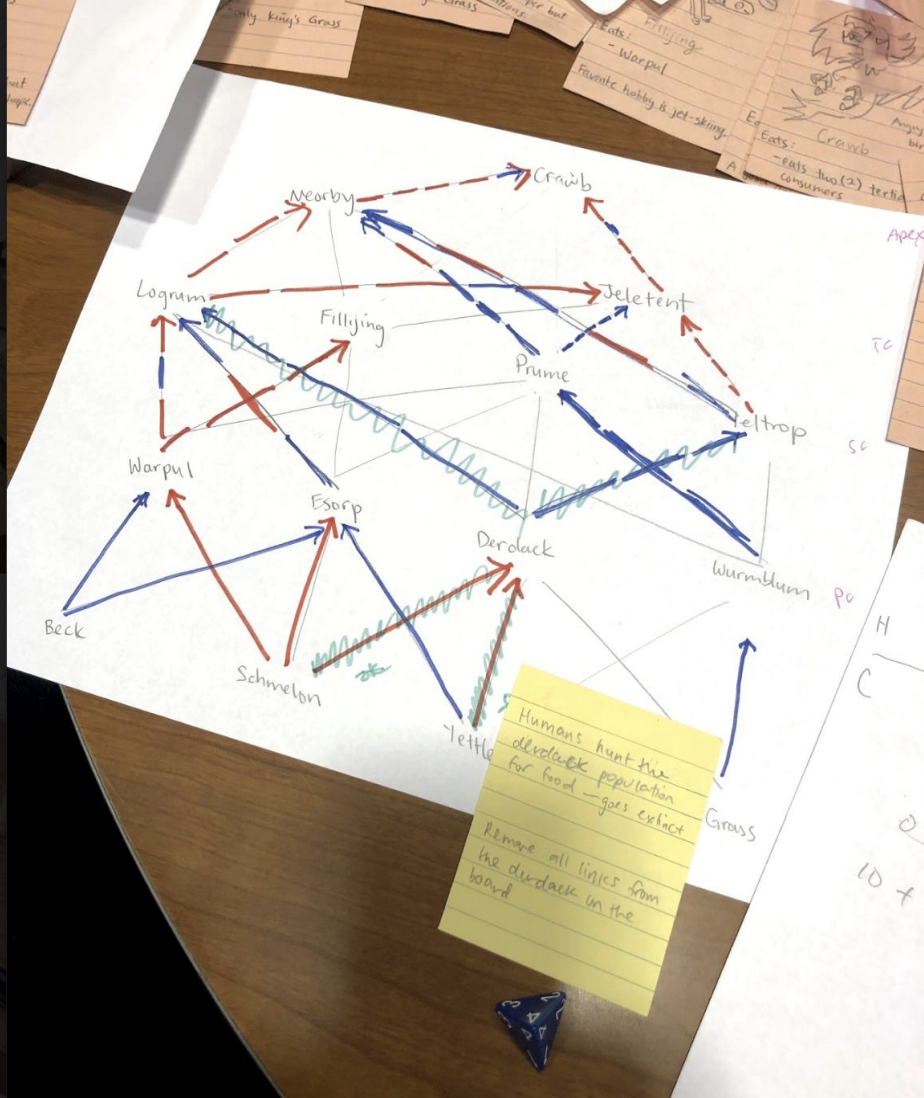 only King's Grass
Grass
per but
Fillijing
Eats:
- Warpul
Favorite hobby is jet-skiing.
Crawb
Eats:
-eats two (2)
consumers
A
Crawb
Nearby
Apex
Logrum
Jeletent
Fillijing
TC
Prume
Yeltrop
SC
Warpul
Esorp
Derdack
Wurmblum
PC
Beck
Schmelon
Yettle
Grass
H
C
10 +
Humans hunt the
derdack population
for food - goes extinct
Remove all links from
the derdack on the
board
3
2
4
4